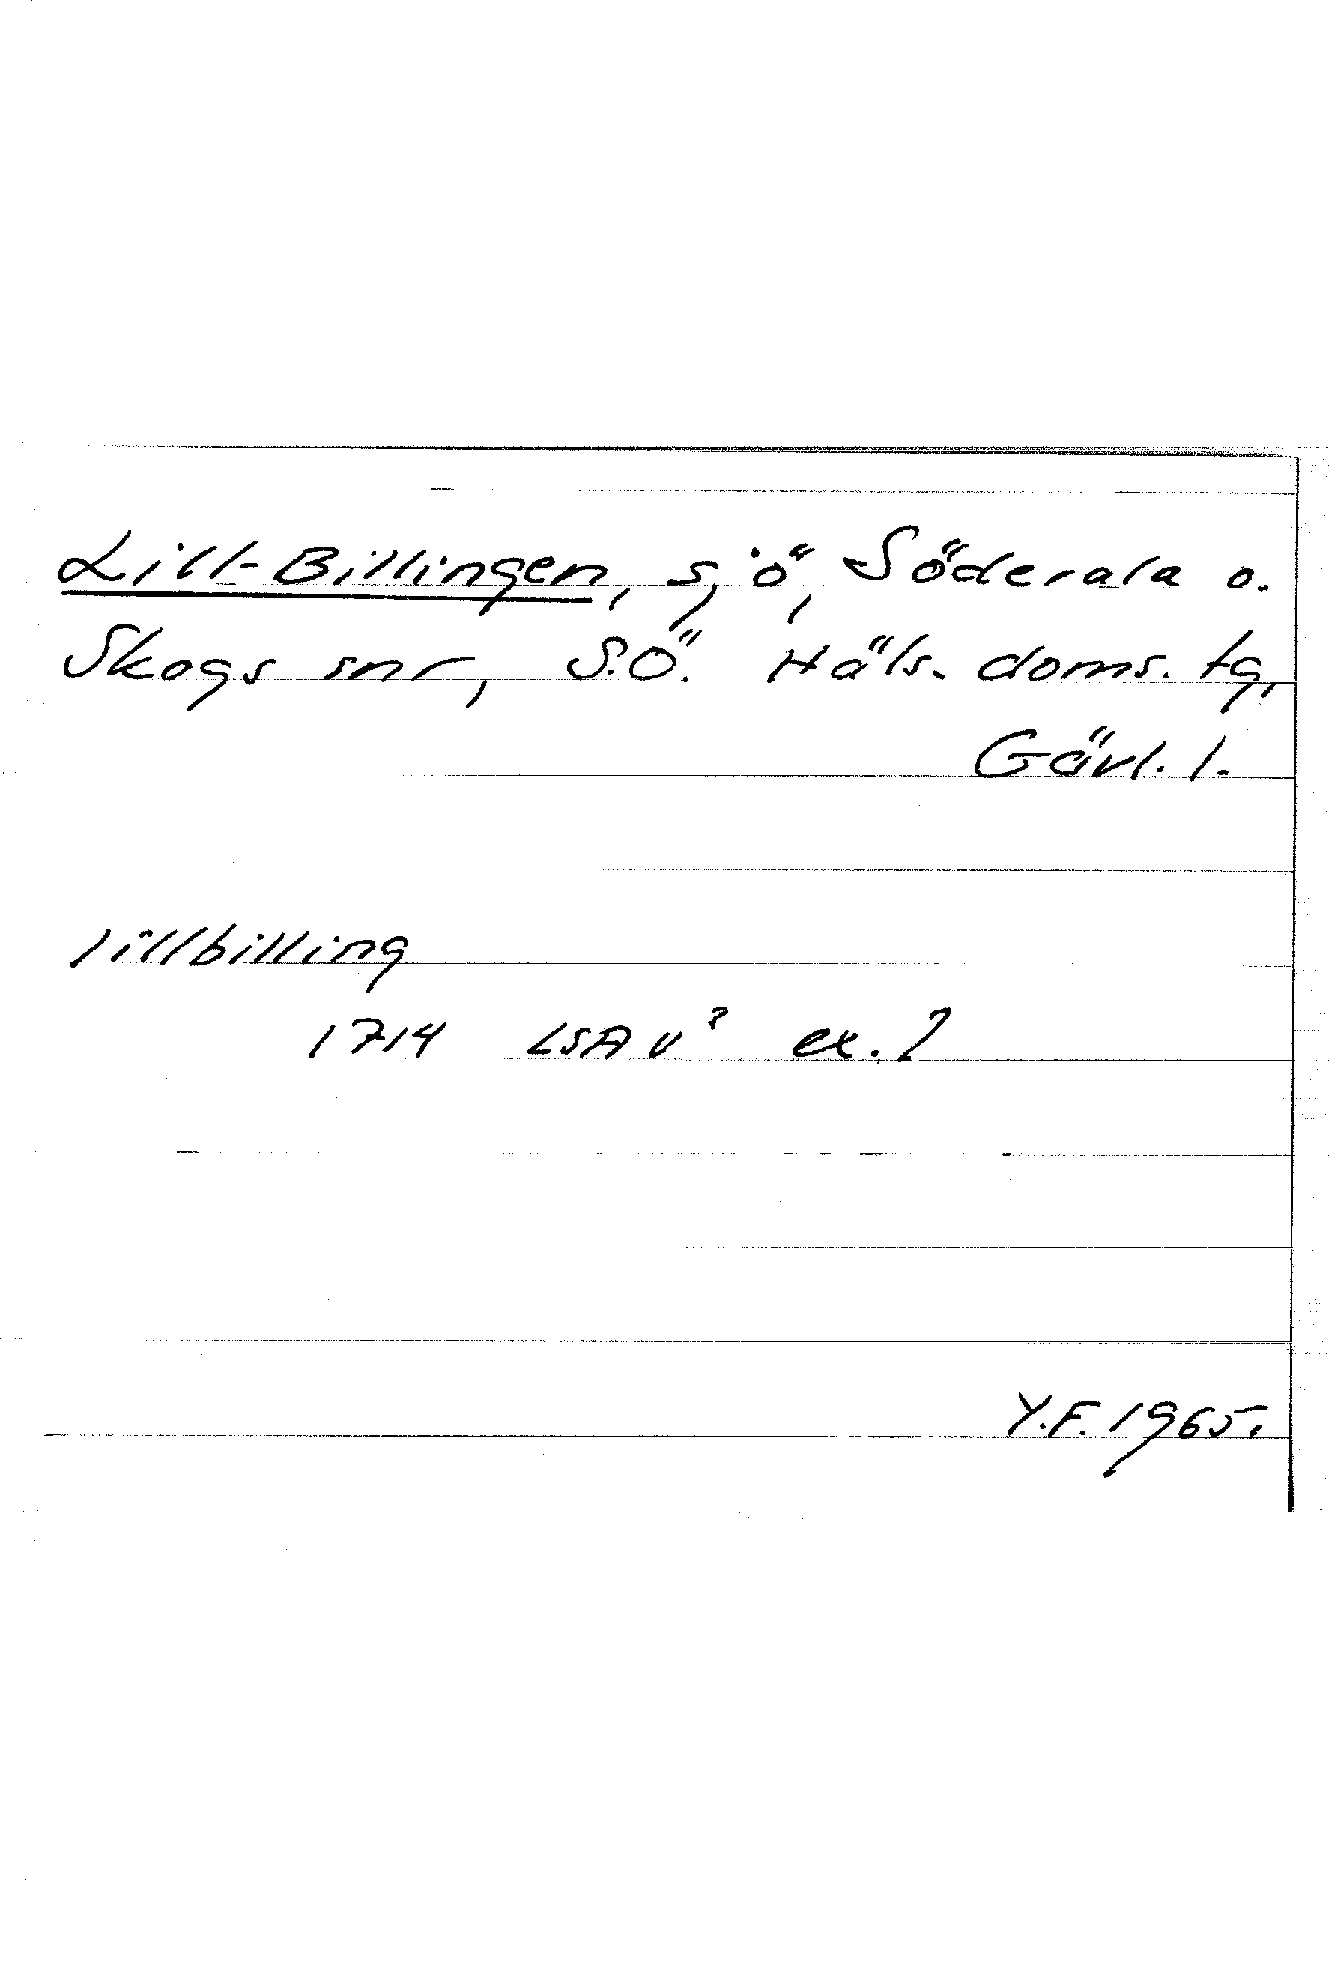 Lill-Billingen, sjö, Söderala o.
Skogs snr, S.Ö. Häls. doms. tg,
Gävl. l.
lillbilling
1714 LSA v? ex. 2
Y.F. 1965.